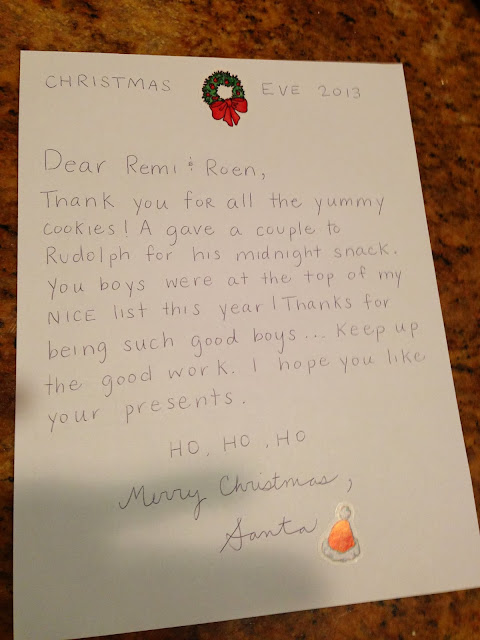 CHRISTMAS EVE 2013
Dear Remi & Roen,
Thank you for all the yummy
cookies! A gave a couple to
Rudolph for his midnight snack.
You boys were at the top of my
NICE list this year! Thanks for
being such good boys... Keep up
the good work. I hope you like
your presents.
HO, HO, HO
Merry Christmas,
Santa